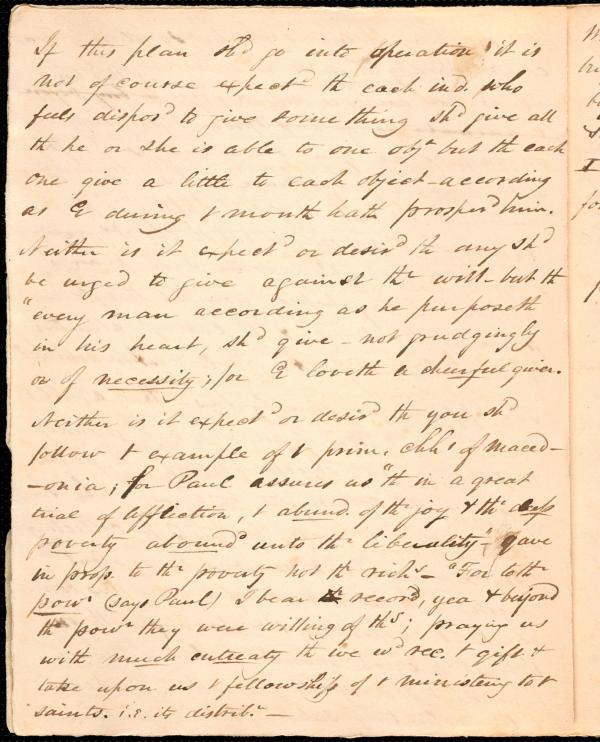 If this plan shd go into operation it is
not of course expectd th each ind. who
feels disposd to give something shd give all
th he or she is able to one objt but th each
one give a little to each object - according
as G during t month hath prosperd him.
Neither is it expectd or desird th any shd
be urged to give against thr will - but th
"every man according as he purposeth
in his heart, shd give - not grudgingly
or of necessity; for G loveth a cheerful giver.
Neither is it expectd or desird th you shd
follow t example of t prim. chhs of maced-
-onia; for Paul assures us "th in a great
trial of affliction, t abund. of thr joy & thr deep
poverty aboundd unto thr liberality", gave
in prop. to thr poverty not thr richs - "For to thr
powr (says Paul) I bear record, yea & beyond
thr powr they were willing of ths; praying us
with much entreaty th we wd rec. t gift &
take upon us t fellowship of t ministering to t
saints. i.e. its distrib.n -
W
I
fo